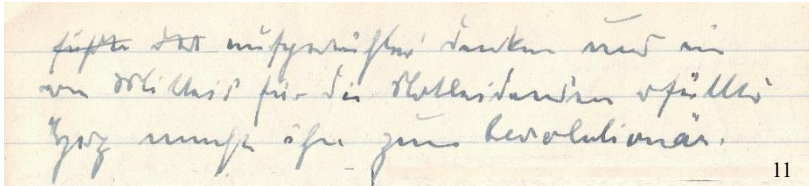 aufgewühltes Denken und ein
von Mitleid für die Notleidenden erfülltes
Herz macht ihn zum Revolutionär.
11